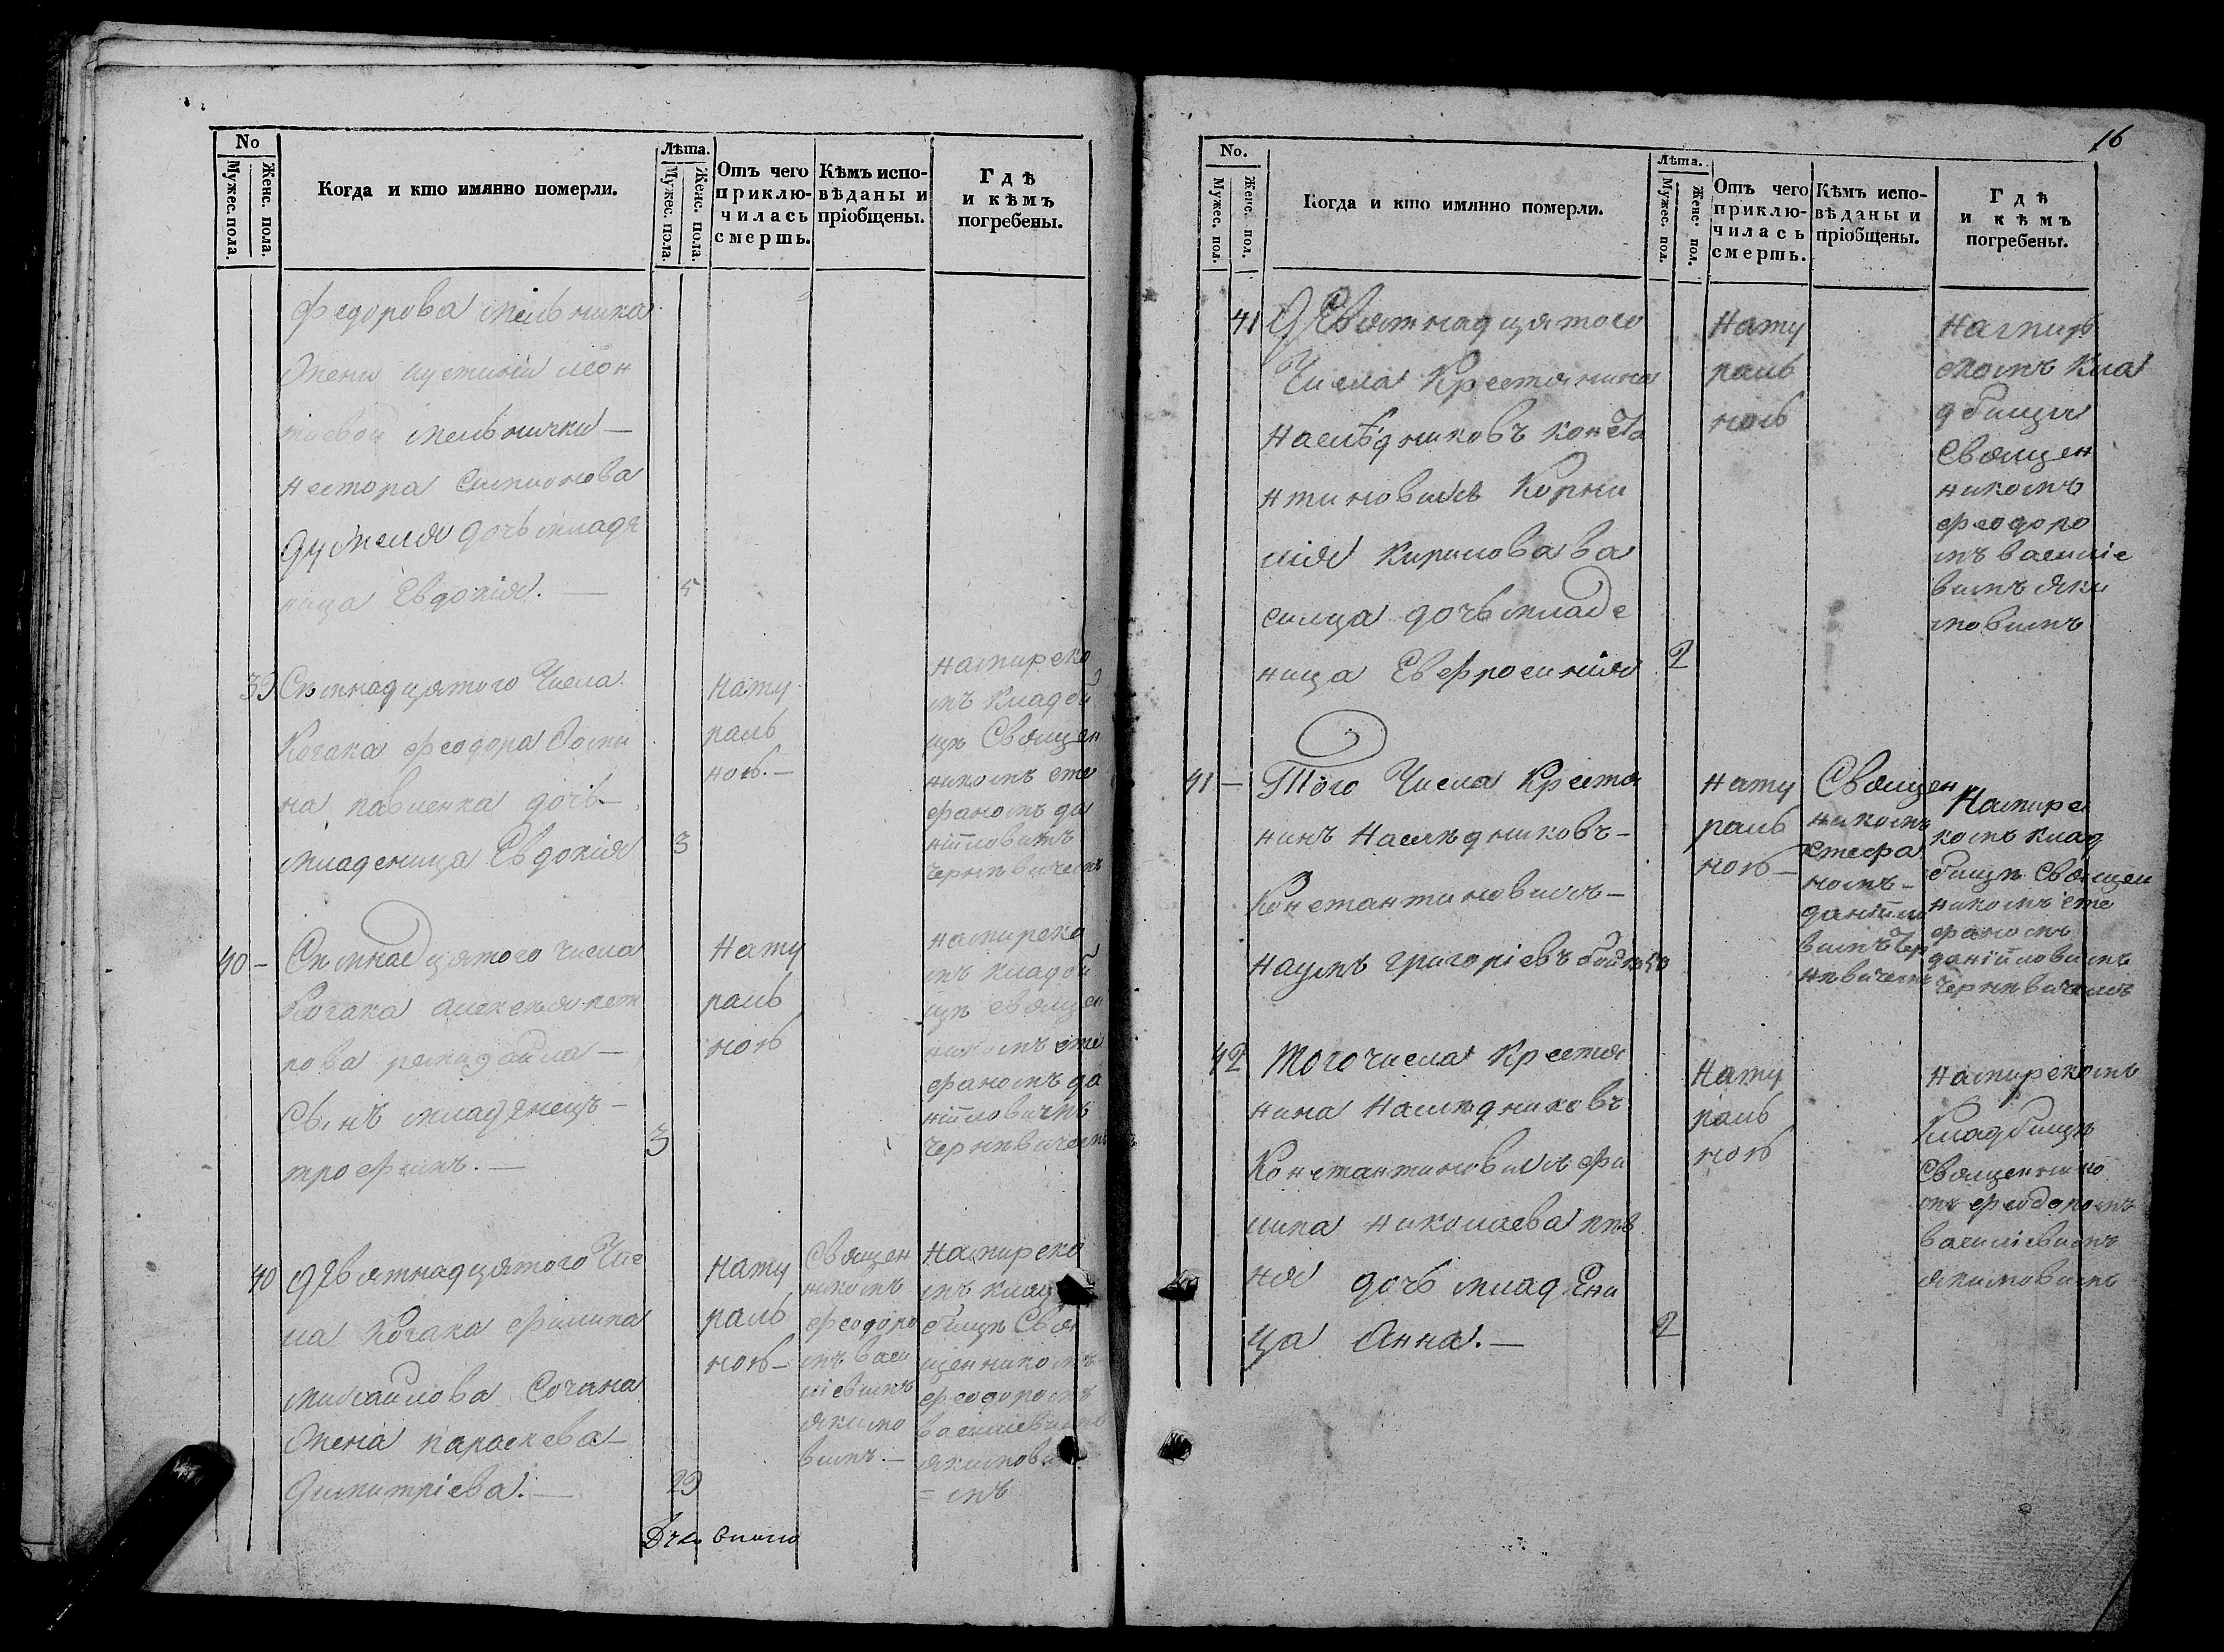 No
Мужес. пола.
Женс. пола.
Когда и кто имянно померли.
Лѣта.
Мужес. пола.
Женс. пола.
Отъ чего
приклю-
чилась
смерть.
Кѣмъ испо-
вѣданы и
пріобщены.
Гдѣ
и кѣмъ
погребены.
Федорова мельника
жены Иустиніи Леон
тіевой мельнички —
Нестора Симионова
дочь младе
ница Евдокія. — 5
39 Семнадцятого Числа
Козака Феодора
Павленка дочь —
младеница Евдокія 3
нату
раль
ною. —
на мирско
мъ кладби
щѣ Священ
никомъ Сте
фаномъ да
ніиловимъ
Чернѣвичемъ
40 — Семнадцятого числа
Козака Алексѣя Пет
рова —
Сынъ младѣнецъ —
Трофимъ. — 3
нату
раль
ною
на мирско
мъ кладби
щѣ свящеи
никомъ Сте
фаномъ да
ніиловичмъ
Чернѣвичемъ
40 дЕвятнадцятого Чис
ла Козака Филипа
Михайлова Сочана
жена Параскева —
Димитріева. — 29
нату
раль
ною —
Священ
никомъ
Феодоро
мъ Васи
ліевимъ
Якимо
вимъ. —
На мирско
мъ клад
бищѣ Свя
щенникомъ
Феодоромъ
Василіевимъ
Якимови
= мъ
16
No.
Мужес. пол.
Женс. пол.
Когда и кто имянно померли.
Лѣта.
Мужес. пол.
Женс. пол.
Отъ чего
приклю-
чилась
смерть.
Кѣмъ испо-
вѣданы и
пріобщены.
Гдѣ
и кѣмъ
погребены.
41 дЕвятнадцятого
Числа Крестянина
наслѣдниковъ Конста
нтиновихъ Корни
лія Кирилова Ва
силца дочь младе
ница Евфросинія 2
нату
раль
ною
на мир
скомъ кла
дбищи
Священ
никомъ
Феодоро
мъ Василіе
вимъ Яки
мовимъ
41 — Того Числа Крестя
нинъ Наслѣдниковъ —
Константиновихъ —
Наумъ Григоріевъ
нату
раль
ною —
Священ
никомъ
Стефа
номъ —
даніило
вимъ Чер
нѣвичемъ
На мирс
комъ клад
бищѣ Священ
никомъ Сте
фаномъ
даніиловимъ
Чернѣвичемъ
42 Того числа Крестя
нина Наслѣдниковъ
Константиновихъ Фи
липа Николаева
дочь младЕни
ца Анна. — 2
нату
раль
ною
на мирскомъ
Кладбищѣ
Священнико
мъ Феодоромъ
Василіевимъ
Якимовимъ